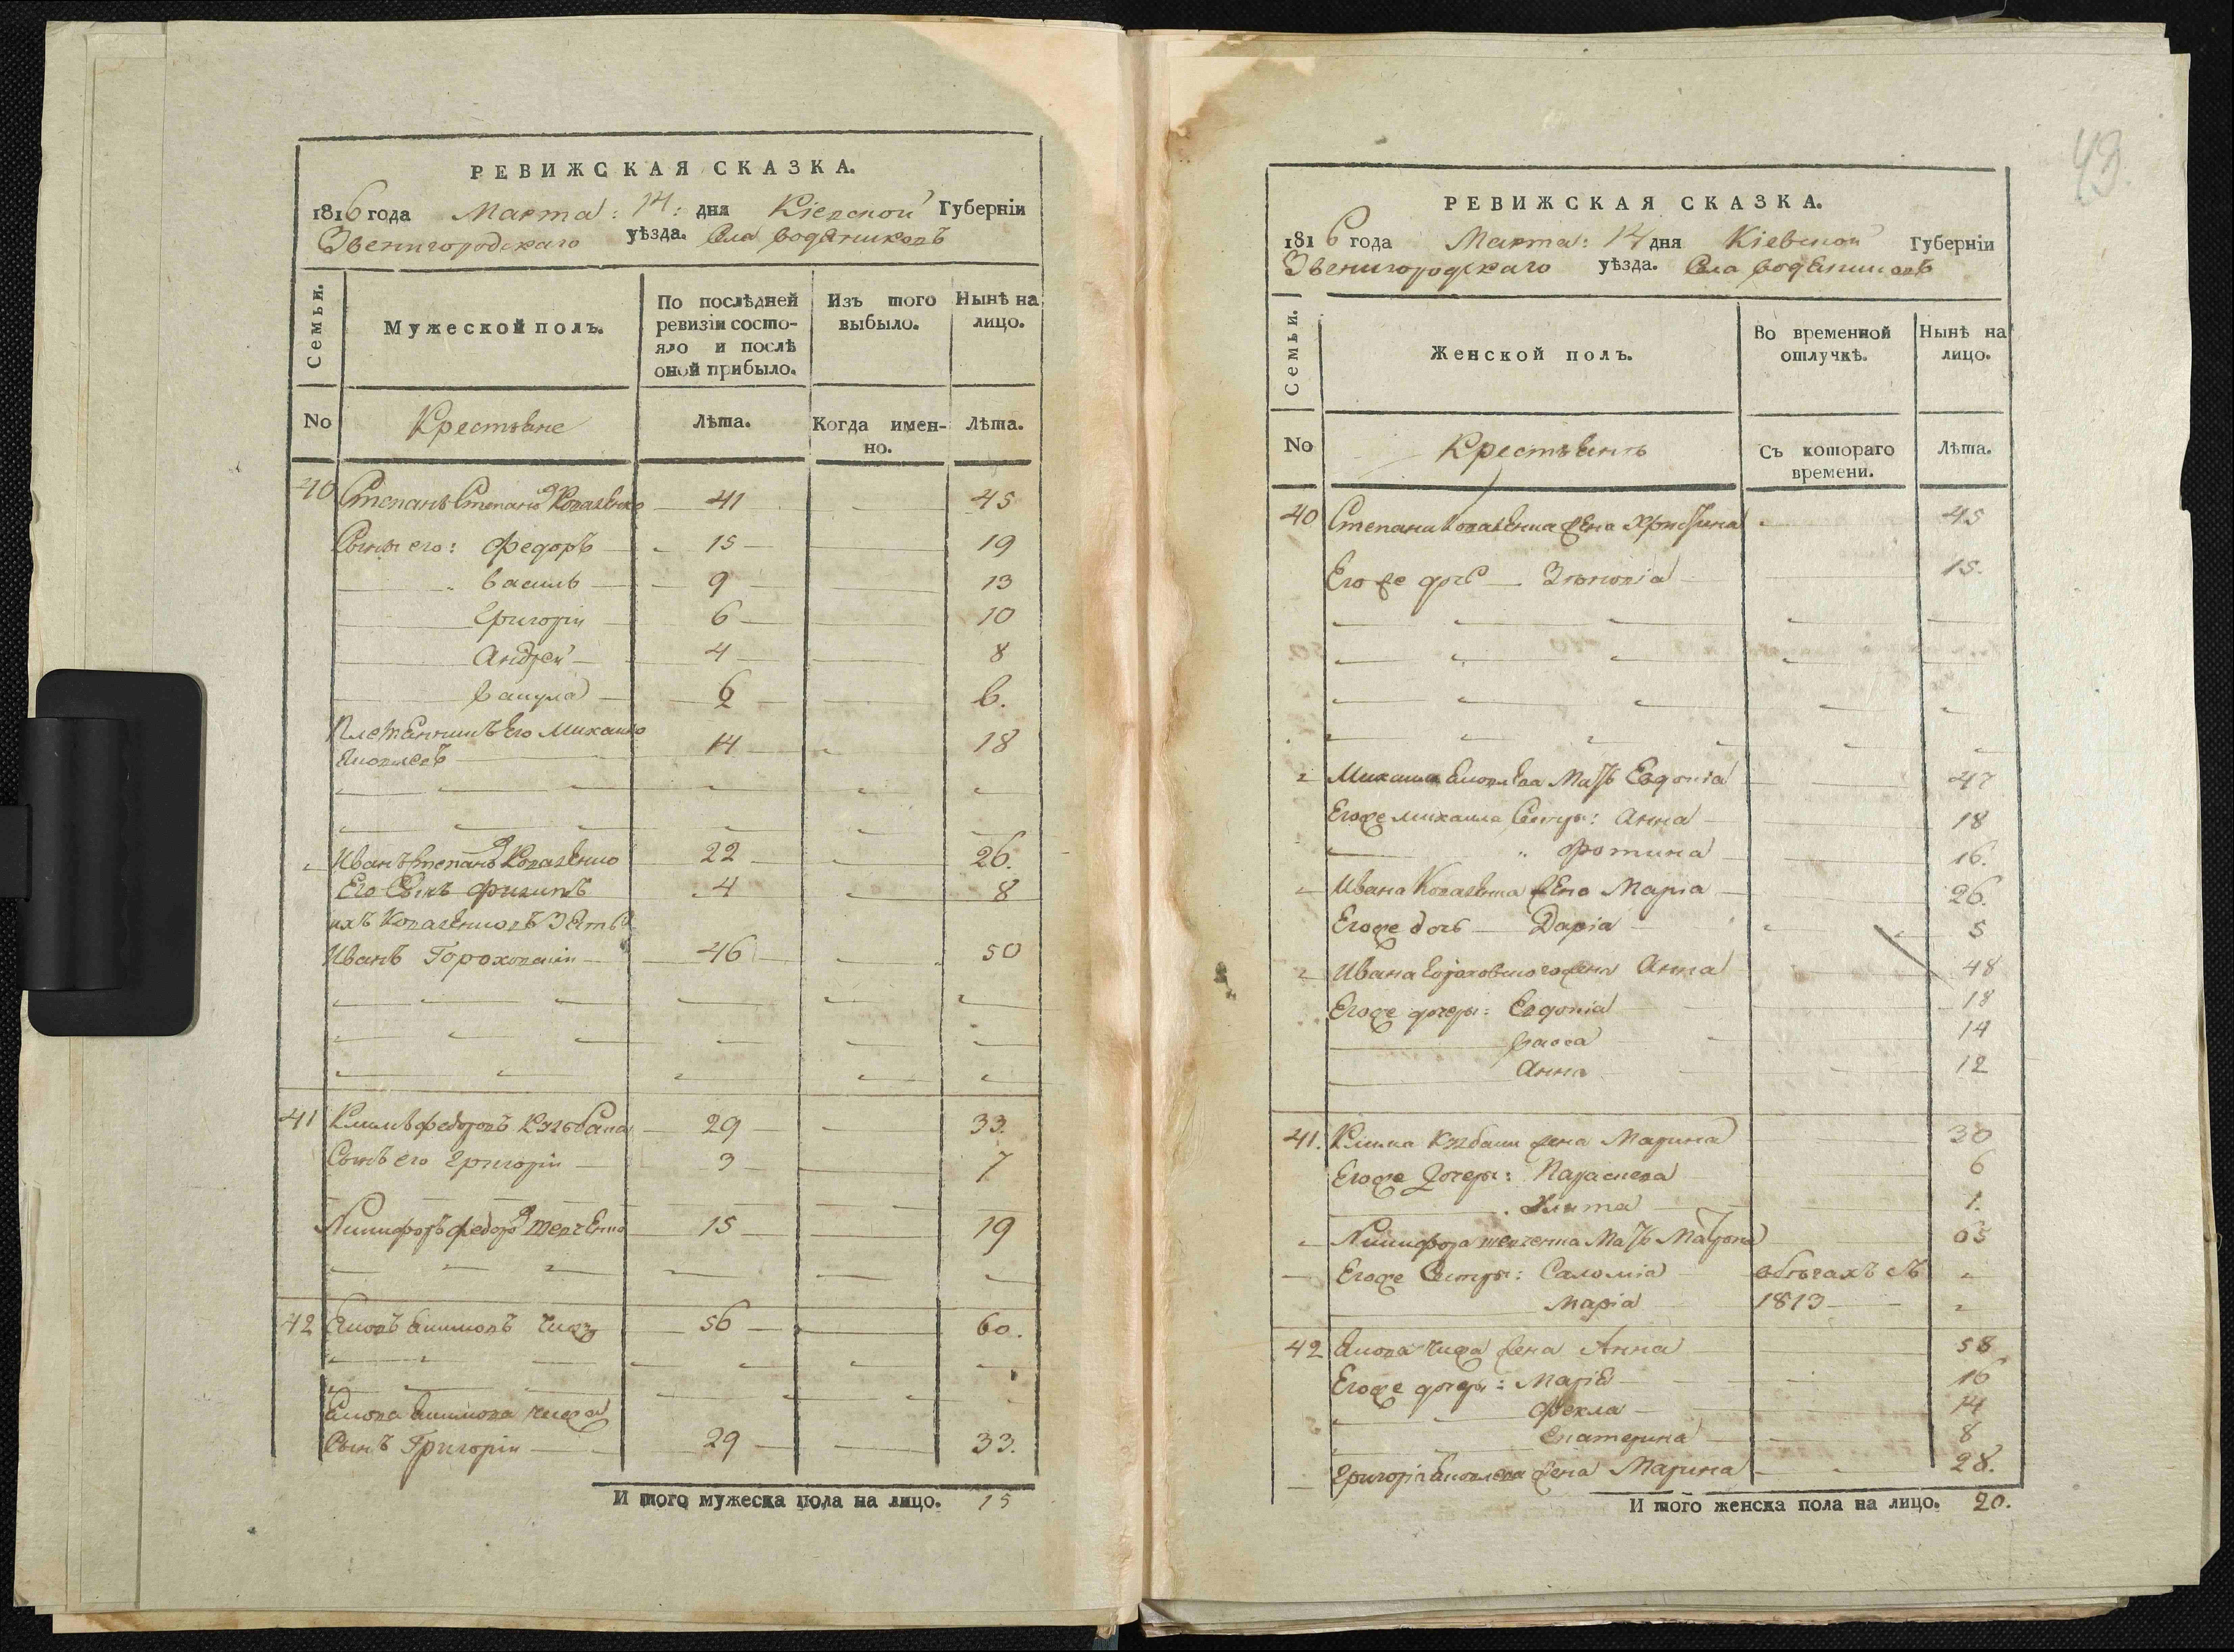 РЕВИЖСКАЯ СКАЗКА.
1816 года Марта: 14: дня Кіевской Губерніи
Звенигородскаго уѣзда. Села Водяниковъ
Семьи.
Мужеской полъ.
По послѣдней ревизіи состо-
яло и послѣ
оной прибыло.
Изъ того выбыло.
Нынѣ на лицо.
No
Крестьяне
Лѣта.
Когда имен-
но.
Лѣта.
40 Степанъ Степановъ Коваленко 41 45
Сыны его: Федоръ 15 19
Василь 9 13
Григорій 6 10
Андрей 4 8
Вакула 2 6.
Племянникъ его Михайло
Яковлевъ 14 18
Иванъ Степановъ Коваленко 22 26.
Его Сынъ Филипъ 4 8
ихъ Коваленковъ Зять
Иванъ Гороховскій 46 50
41 Климъ Федоровъ 29 33.
Сынъ его Григорій 3 7
Никифоръ Федоровъ Шевченко 15 19
42 Яковъ Акимовъ Чижъ 56 60.
Якова Акимова Чижа
Сынъ Григорій 29 33.
И того мужеска пола на лицо. 15
43.
РЕВИЖСКАЯ СКАЗКА.
1816 года Марта: 14 дня Кіевской Губерніи
Звенигородскаго уѣзда. Села Водяниковъ
Семьи.
Женской полъ.
Во временной отлучкѣ.
Нынѣ на лицо.
No
Крестьянъ
Съ котораго времени.
Лѣта.
40 Степана Коваленка жена Христина 45
Его же дочь Зѣновія 15.
Михайла Яковлева Мать Евдокія 47
Егоже Михайла Сестры: Анна 18
Фотина 16.
Ивана Коваленка жена Марія 26.
Егоже дочь Дарія 5
Ивана Гороховского жена Анна 48
Егоже дочеры: Евдокія 18
Власа 14
Анна 12
41. Клима жена Марина 30
Егоже Дочеры: Параскева 6
1.
Никифора Шевченка Мать Матрона 65
Егоже Сестры: Саломія въ бѣгахъ съ
Марія 1813
42 Якова Чижа жена Анна 58
Егоже дочеры: Марія 16
Фекла 14
Екатерина 8
Григорія Яковлева жена Марина 28.
И того женска пола на лицо. 20.